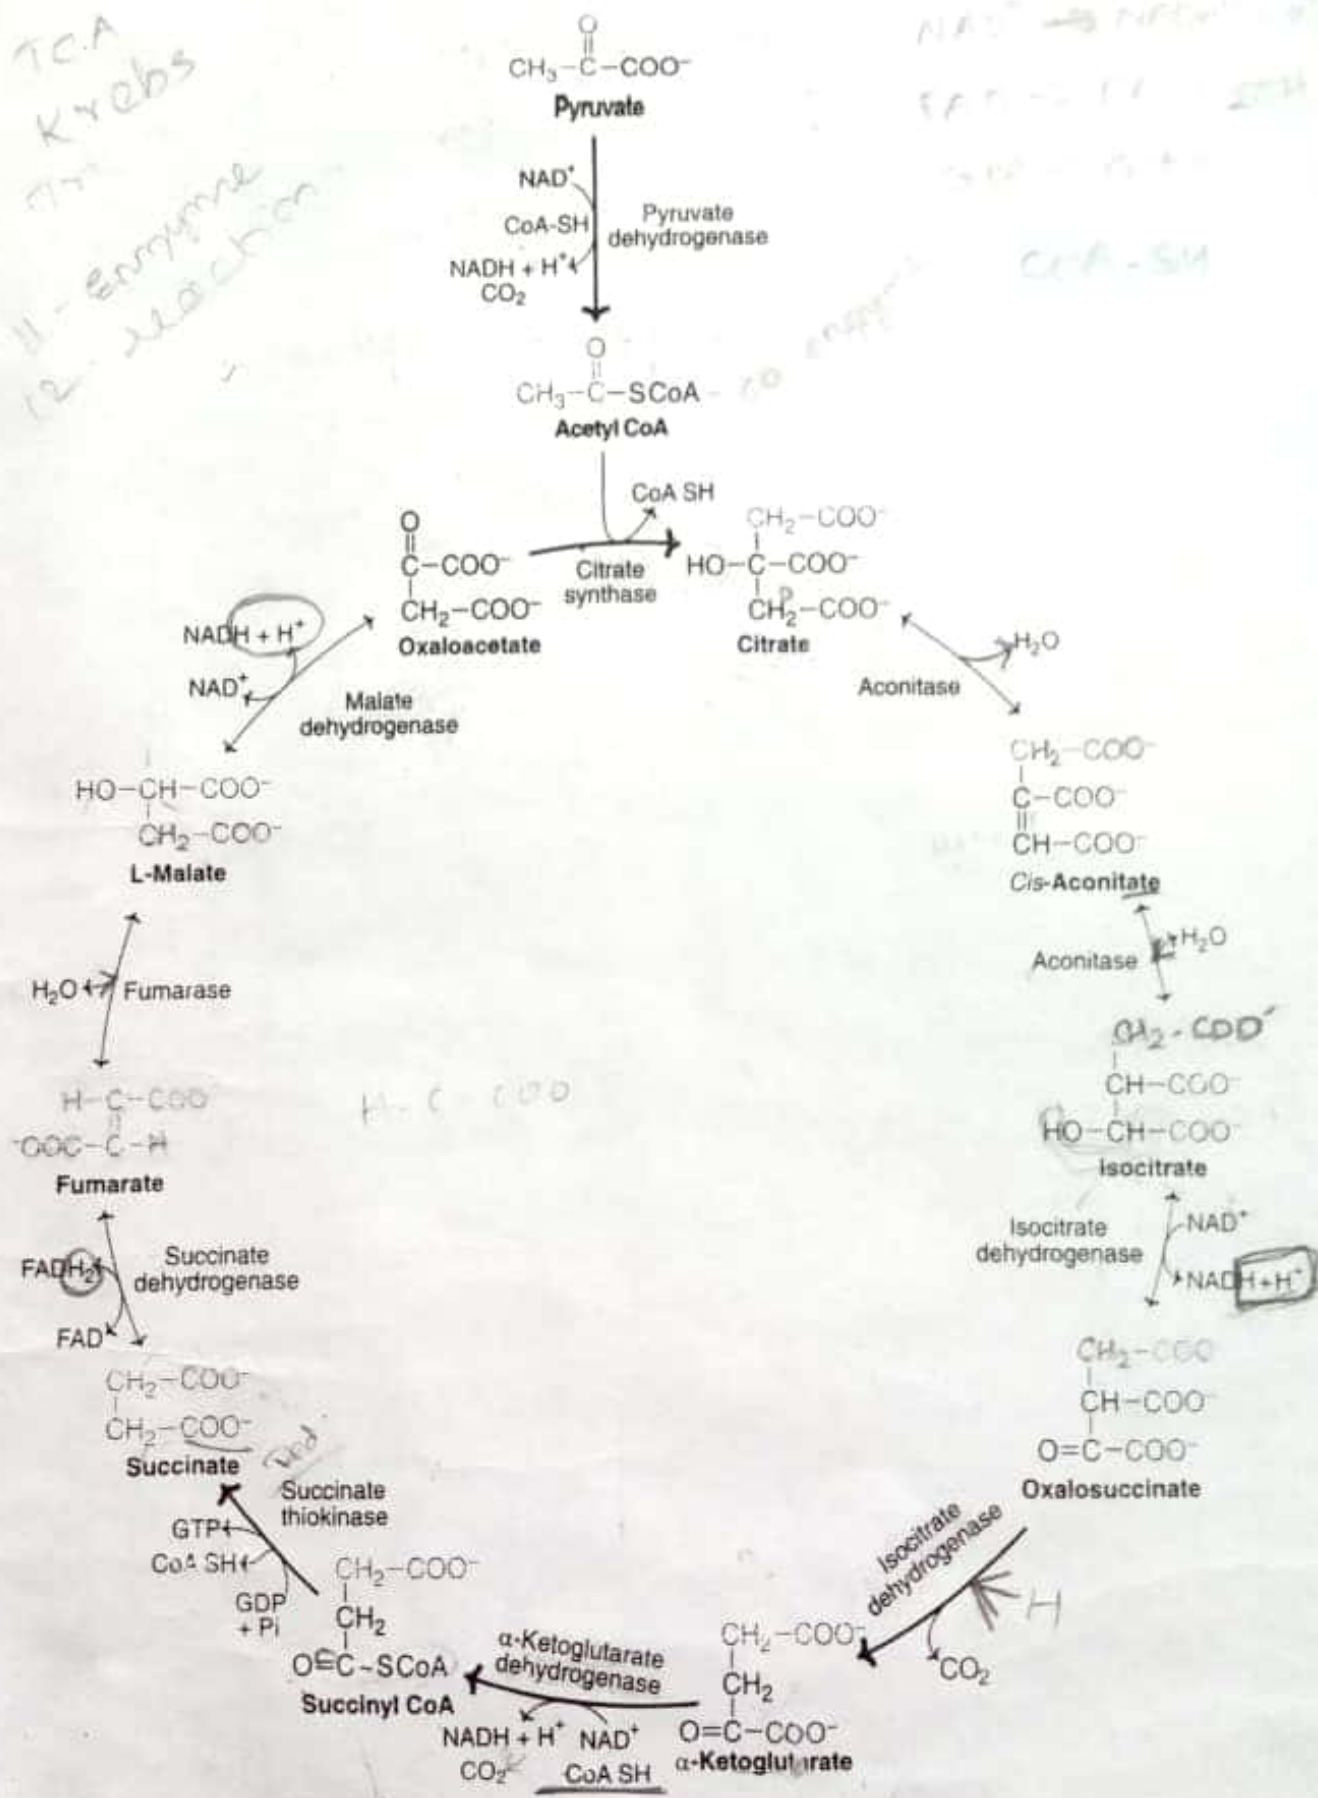 TCA
Krebs
11 - Enzyme
12 reaction
COA-SH
O
CH₃–C–COO⁻
Pyruvate
NAD⁺
CoA-SH
NADH + H⁺
CO₂
Pyruvate
dehydrogenase
O
CH₃–C–SCoA
Acetyl CoA
CoA SH
O
C–COO⁻
CH₂–COO⁻
Oxaloacetate
Citrate
synthase
CH₂–COO⁻
HO–C–COO⁻
CH₂–COO⁻
Citrate
H₂O
Aconitase
CH₂–COO⁻
C–COO⁻
CH–COO⁻
Cis-Aconitate
Aconitase
H₂O
CH₂-COO⁻
CH–COO⁻
HO–CH–COO⁻
Isocitrate
Isocitrate
dehydrogenase
NAD⁺
NADH+H⁺
CH₂–COO
CH–COO⁻
O=C–COO⁻
Oxalosuccinate
Isocitrate
dehydrogenase
H
CO₂
CH₂–COO⁻
CH₂
O=C–COO⁻
α-Ketoglutarate
α-Ketoglutarate
dehydrogenase
NADH + H⁺ NAD⁺
CO₂ CoA SH
CH₂–COO⁻
CH₂
O=C~SCoA
Succinyl CoA
Succinate
thiokinase
GTP
CoA SH
GDP
+ Pi
CH₂–COO⁻
CH₂–COO⁻
Succinate
Succinate
dehydrogenase
FADH₂
FAD
H–C–COO⁻
⁻OOC–C–H
Fumarate
H-C-COO
H₂O
Fumarase
HO–CH–COO⁻
CH₂–COO⁻
L-Malate
NADH + H⁺
NAD⁺
Malate
dehydrogenase